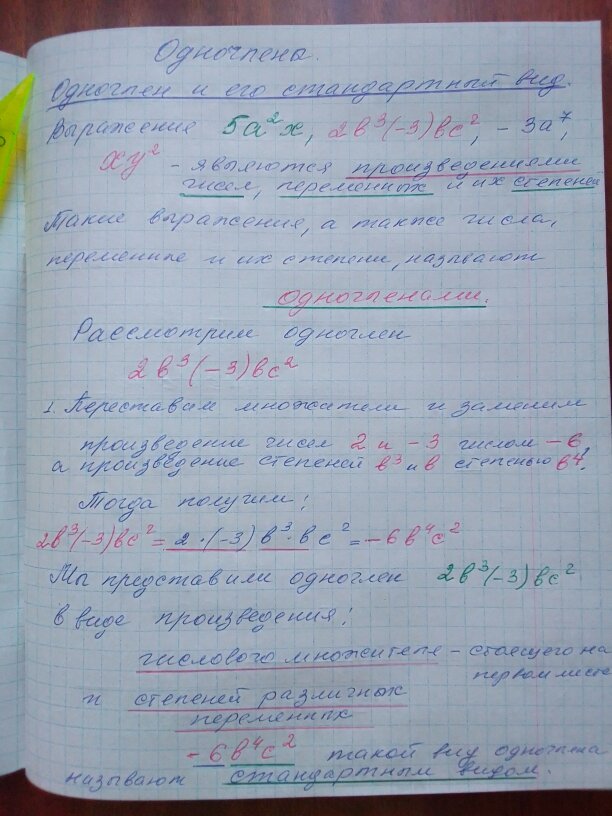 Одночлены.
Одночлен и его стандартный вид.
Выражение 5a²x, 2b³(-3)bc², -3a⁷,
xy² - являются произведениями
чисел, переменных и их степеней
Такие выражения, а также числа,
переменные и их степени, называют
одночленами.
Рассмотрим одночлен
2b³(-3)bc²
1. Переставим множители и заменим
произведение чисел 2 и -3 числом -6,
а произведение степеней b³ и b степенью b⁴.
Тогда получим:
2b³(-3)bc² = 2·(-3)b³·bc² = -6b⁴c²
Мы представили одночлен 2b³(-3)bc²
в виде произведения:
числового множителя - стоящего на
первом месте
и степеней различных
переменных
-6b⁴c² такой вид одночлена
называют стандартным видом.